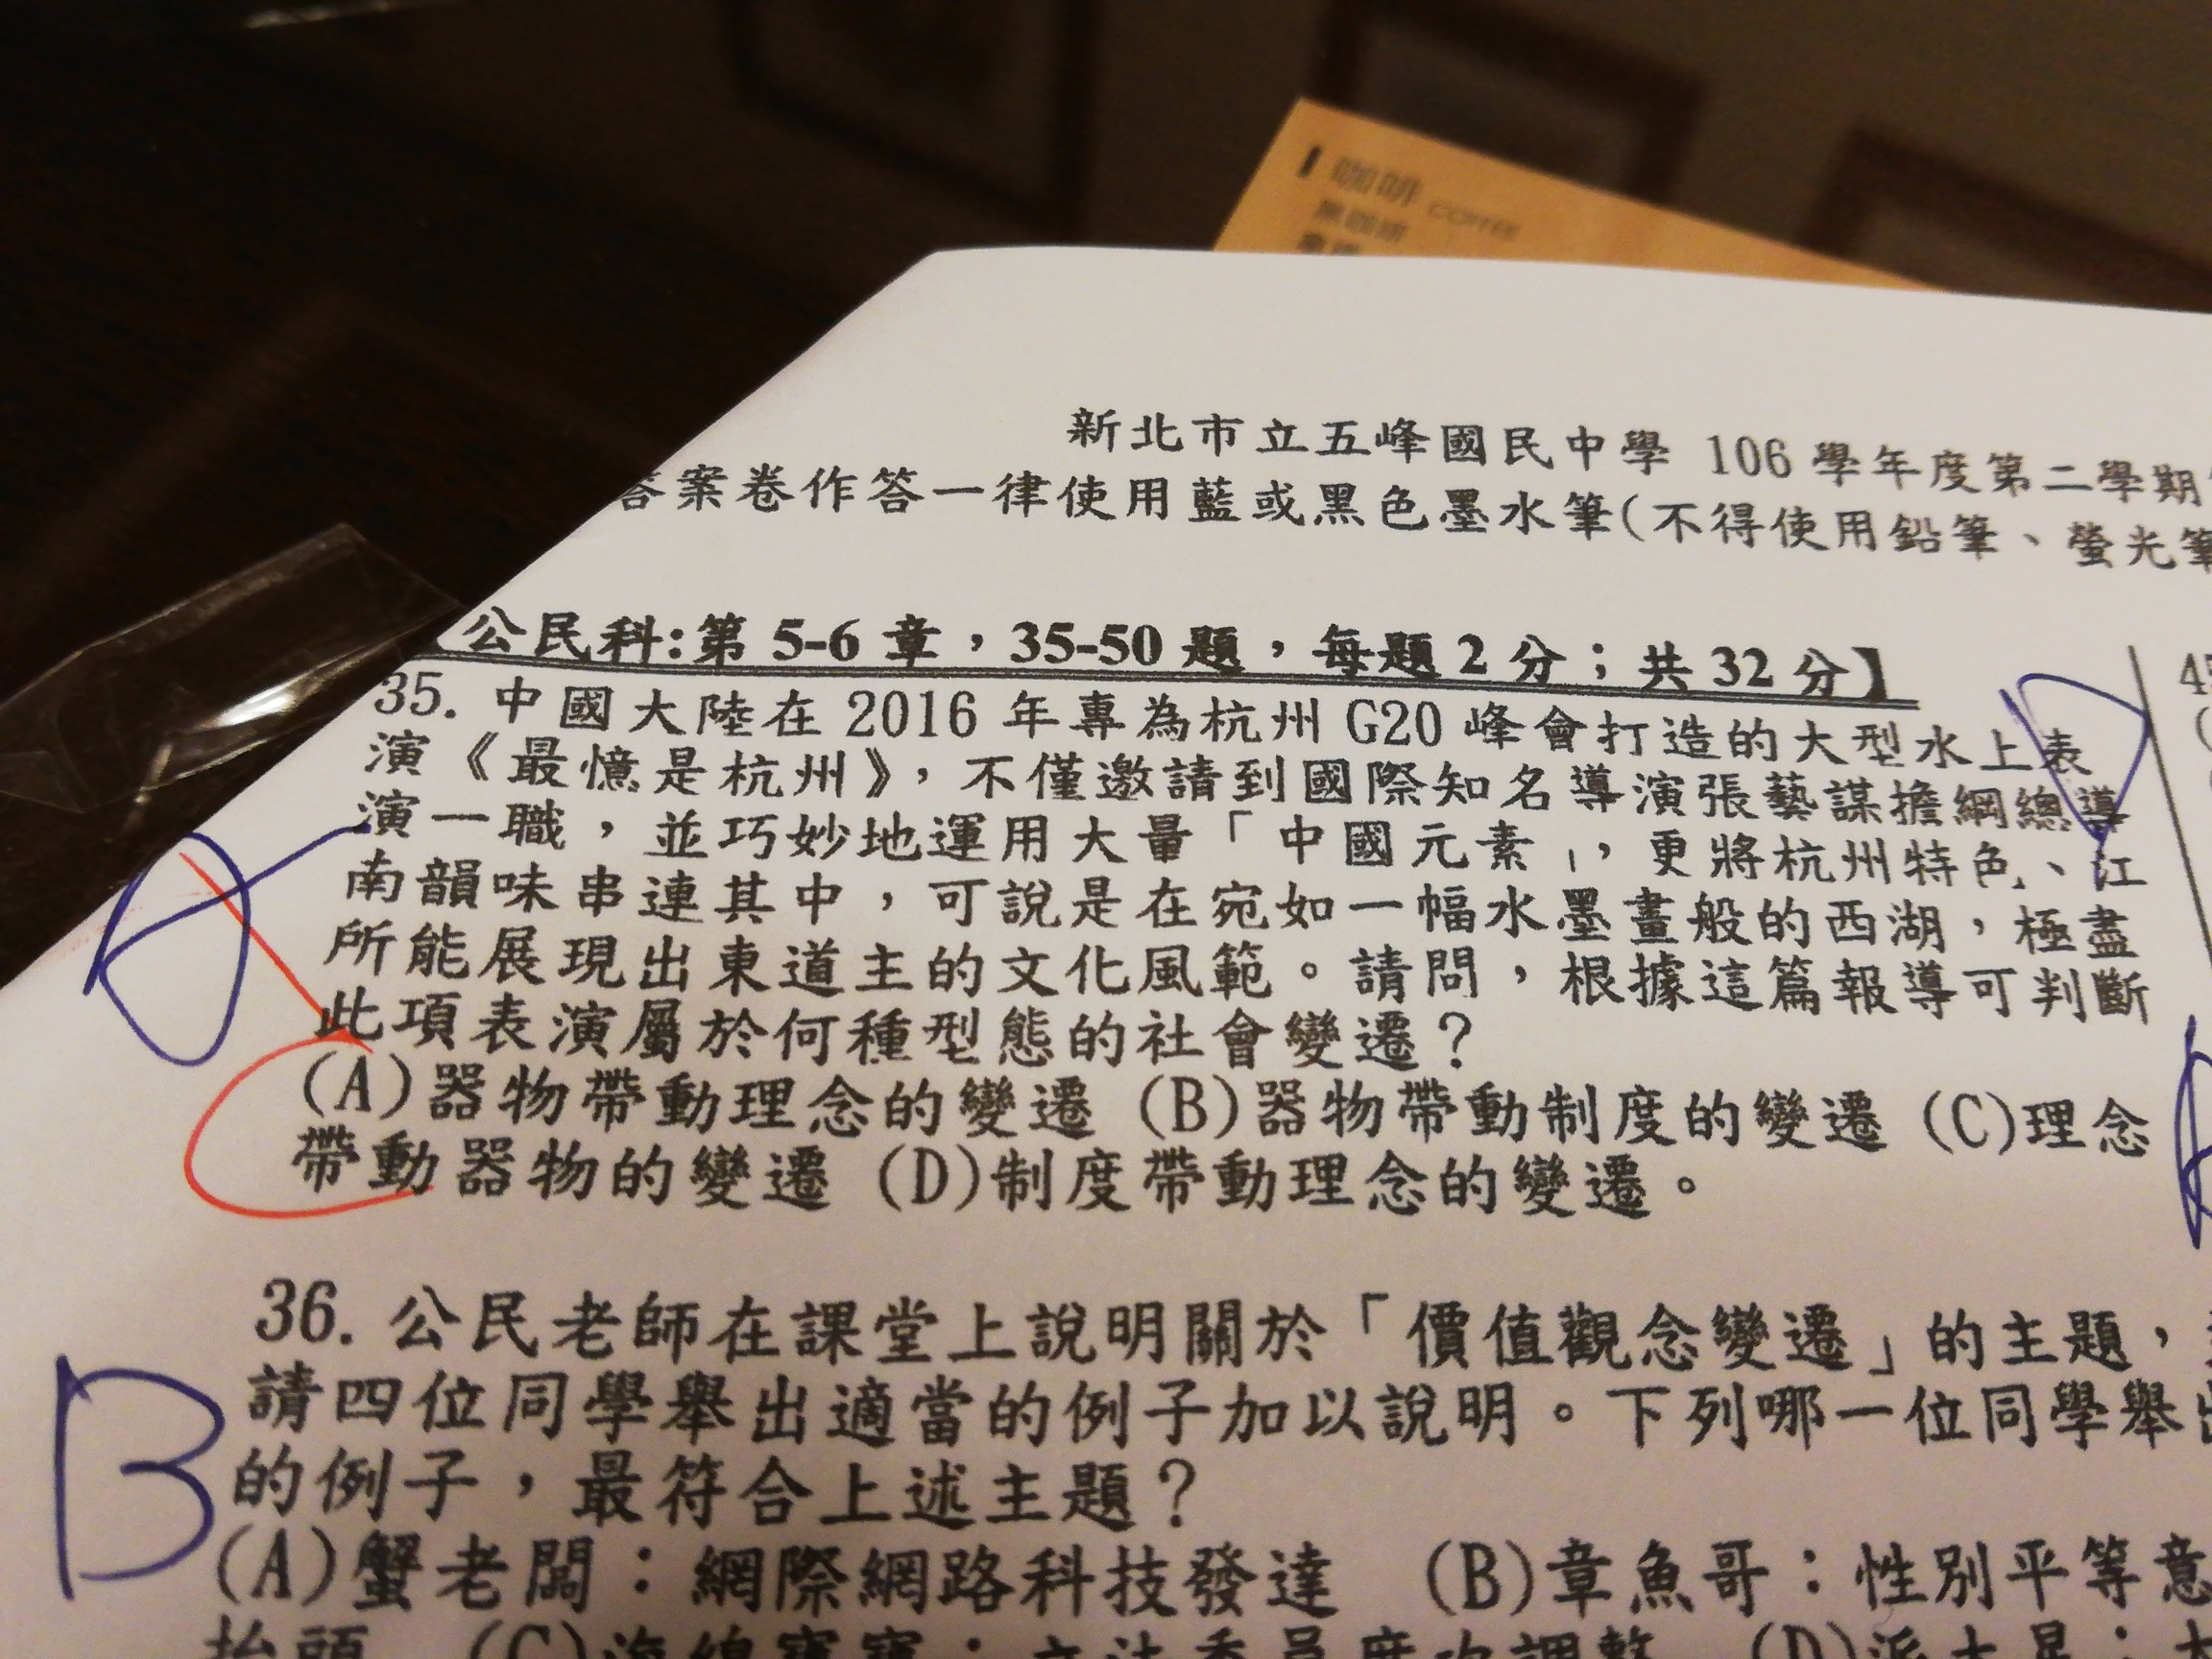 咖啡 COFFEE
黑咖啡
新北市立五峰國民中學 106 學年度第二學期
答案卷作答一律使用藍或黑色墨水筆(不得使用鉛筆、螢光筆
公民科:第 5-6 章，35-50 題，每題 2 分；共 32 分】
35. 中國大陸在 2016 年專為杭州 G20 峰會打造的大型水上表
演《最憶是杭州》，不僅邀請到國際知名導演張藝謀擔綱總導
演一職，並巧妙地運用大量「中國元素」，更將杭州特色、江
南韻味串連其中，可說是在宛如一幅水墨畫般的西湖，極盡
所能展現出東道主的文化風範。請問，根據這篇報導可判斷
此項表演屬於何種型態的社會變遷？
(A)器物帶動理念的變遷 (B)器物帶動制度的變遷 (C)理念
帶動器物的變遷 (D)制度帶動理念的變遷。
B
36. 公民老師在課堂上說明關於「價值觀念變遷」的主題，
請四位同學舉出適當的例子加以說明。下列哪一位同學舉出
的例子，最符合上述主題？
(A)蟹老闆：網際網路科技發達 (B)章魚哥：性別平等意
抬頭 (C)海綿寶寶：立法委員席次調整 (D)派大星：